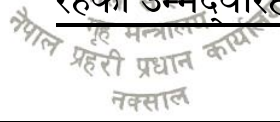 रहेका उम्मेदवारह
गृह मन्त्रालय
नेपाल प्रहरी प्रधान कार्यालय
नक्साल